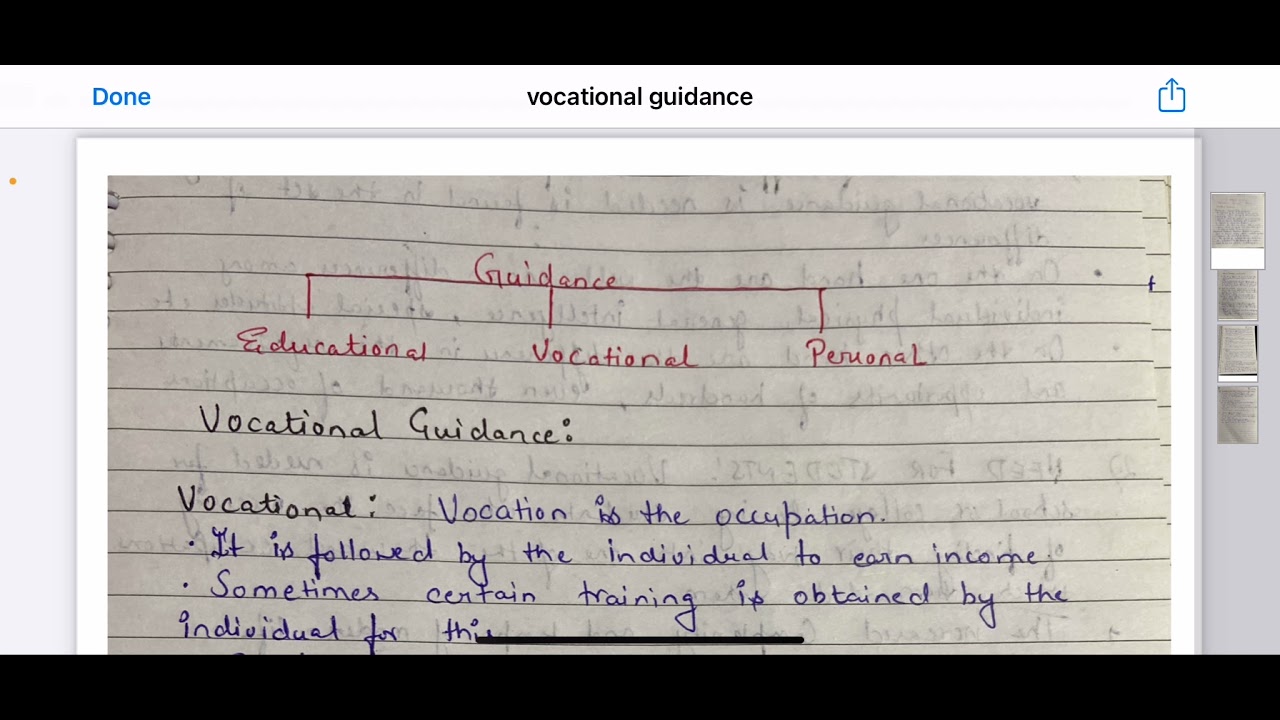 Done vocational guidance
Guidance
Educational Vocational Personal
Vocational Guidance:
Vocational: Vocation is the occupation.
· It is followed by the individual to earn income.
· Sometimes certain training is obtained by the
individual for this